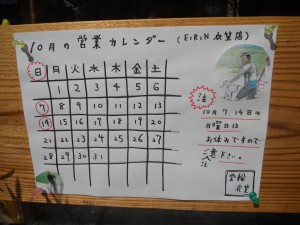 10月の営業カレンダー (EIRIN 衣笠店)
日 月 火 水 木 金 土
1 2 3 4 5 6
7 8 9 10 11 12 13
14 15 16 17 18 19 20
21 22 23 24 25 26 27
28 29 30 31
注
10月 7, 14日の
日曜日は
お休みですので
ご注意下さい。